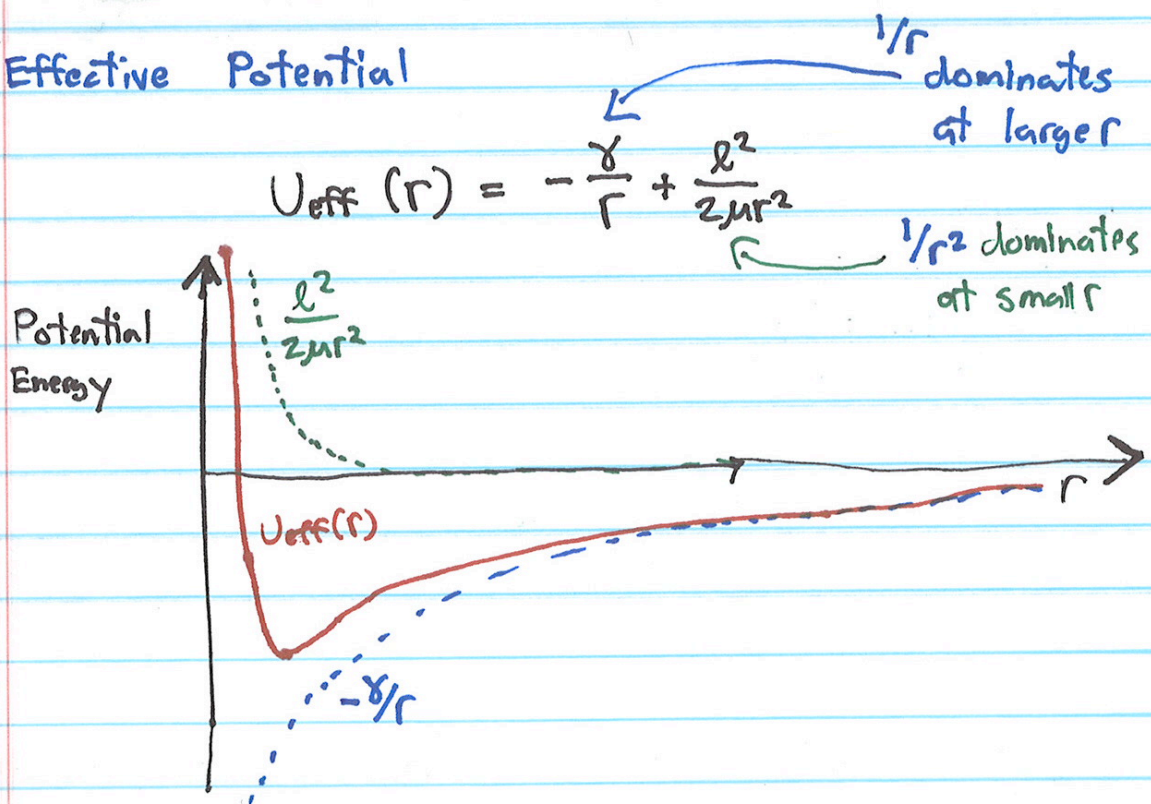 Effective Potential
1/r
dominates
at larger
Ueff (r) = - γ/r + ℓ²/2μr²
1/r² dominates
at small r
Potential
Energy
ℓ²/2μr²
Ueff(r)
r
-γ/r